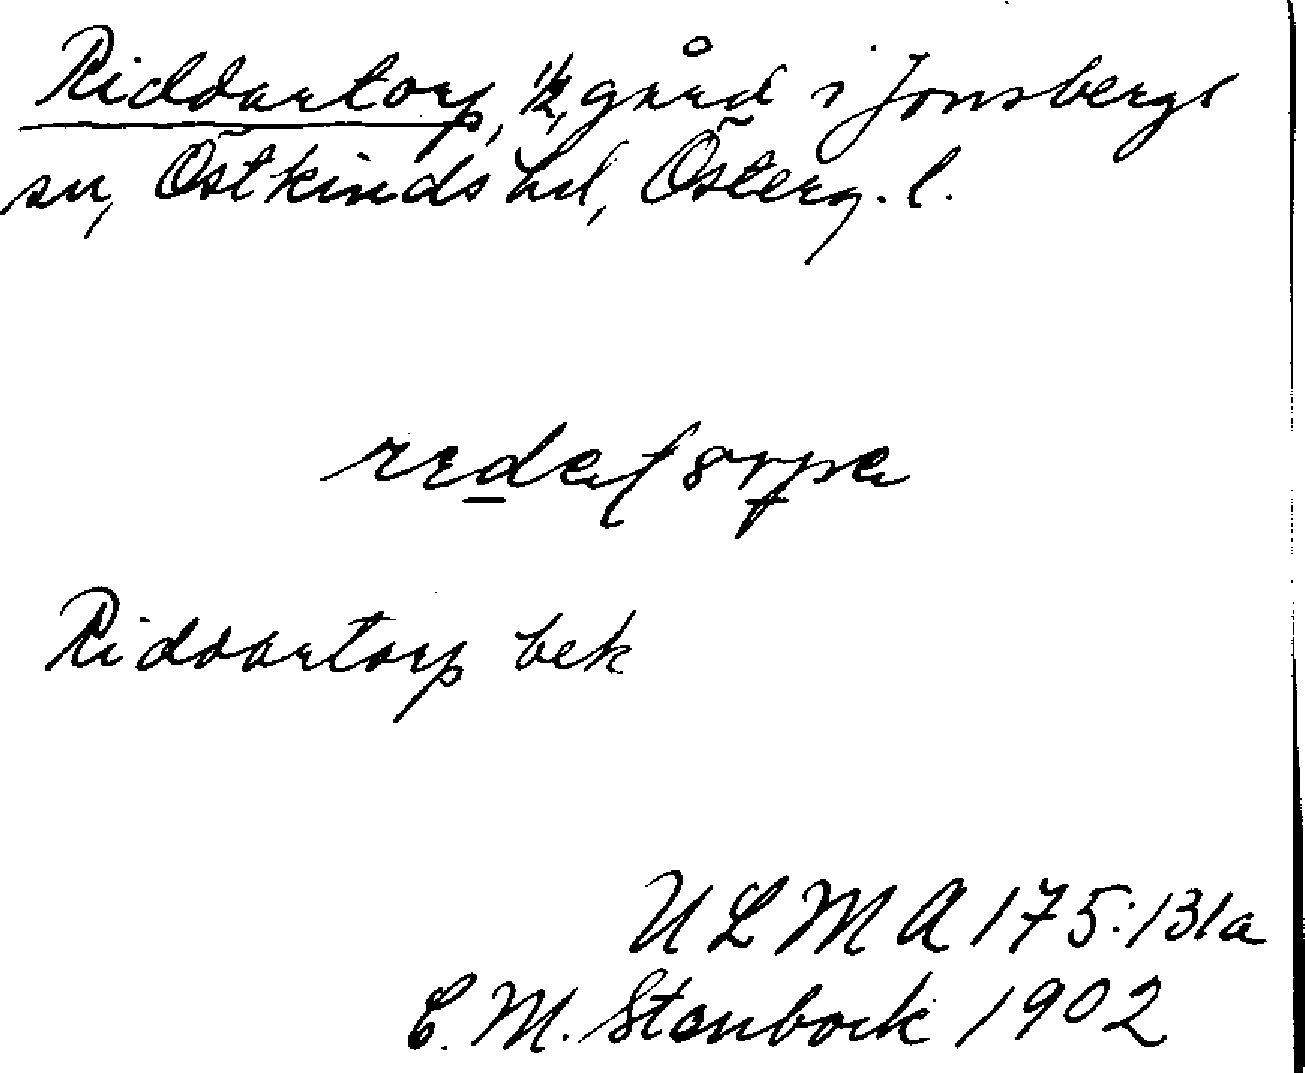 Riddartorp, 1/2, gård i Jonsbergs
sn, Östkinds hd, Österg. l.
Riddartorp bek
ULMA 175:131a
C. M. Stenbock 1902